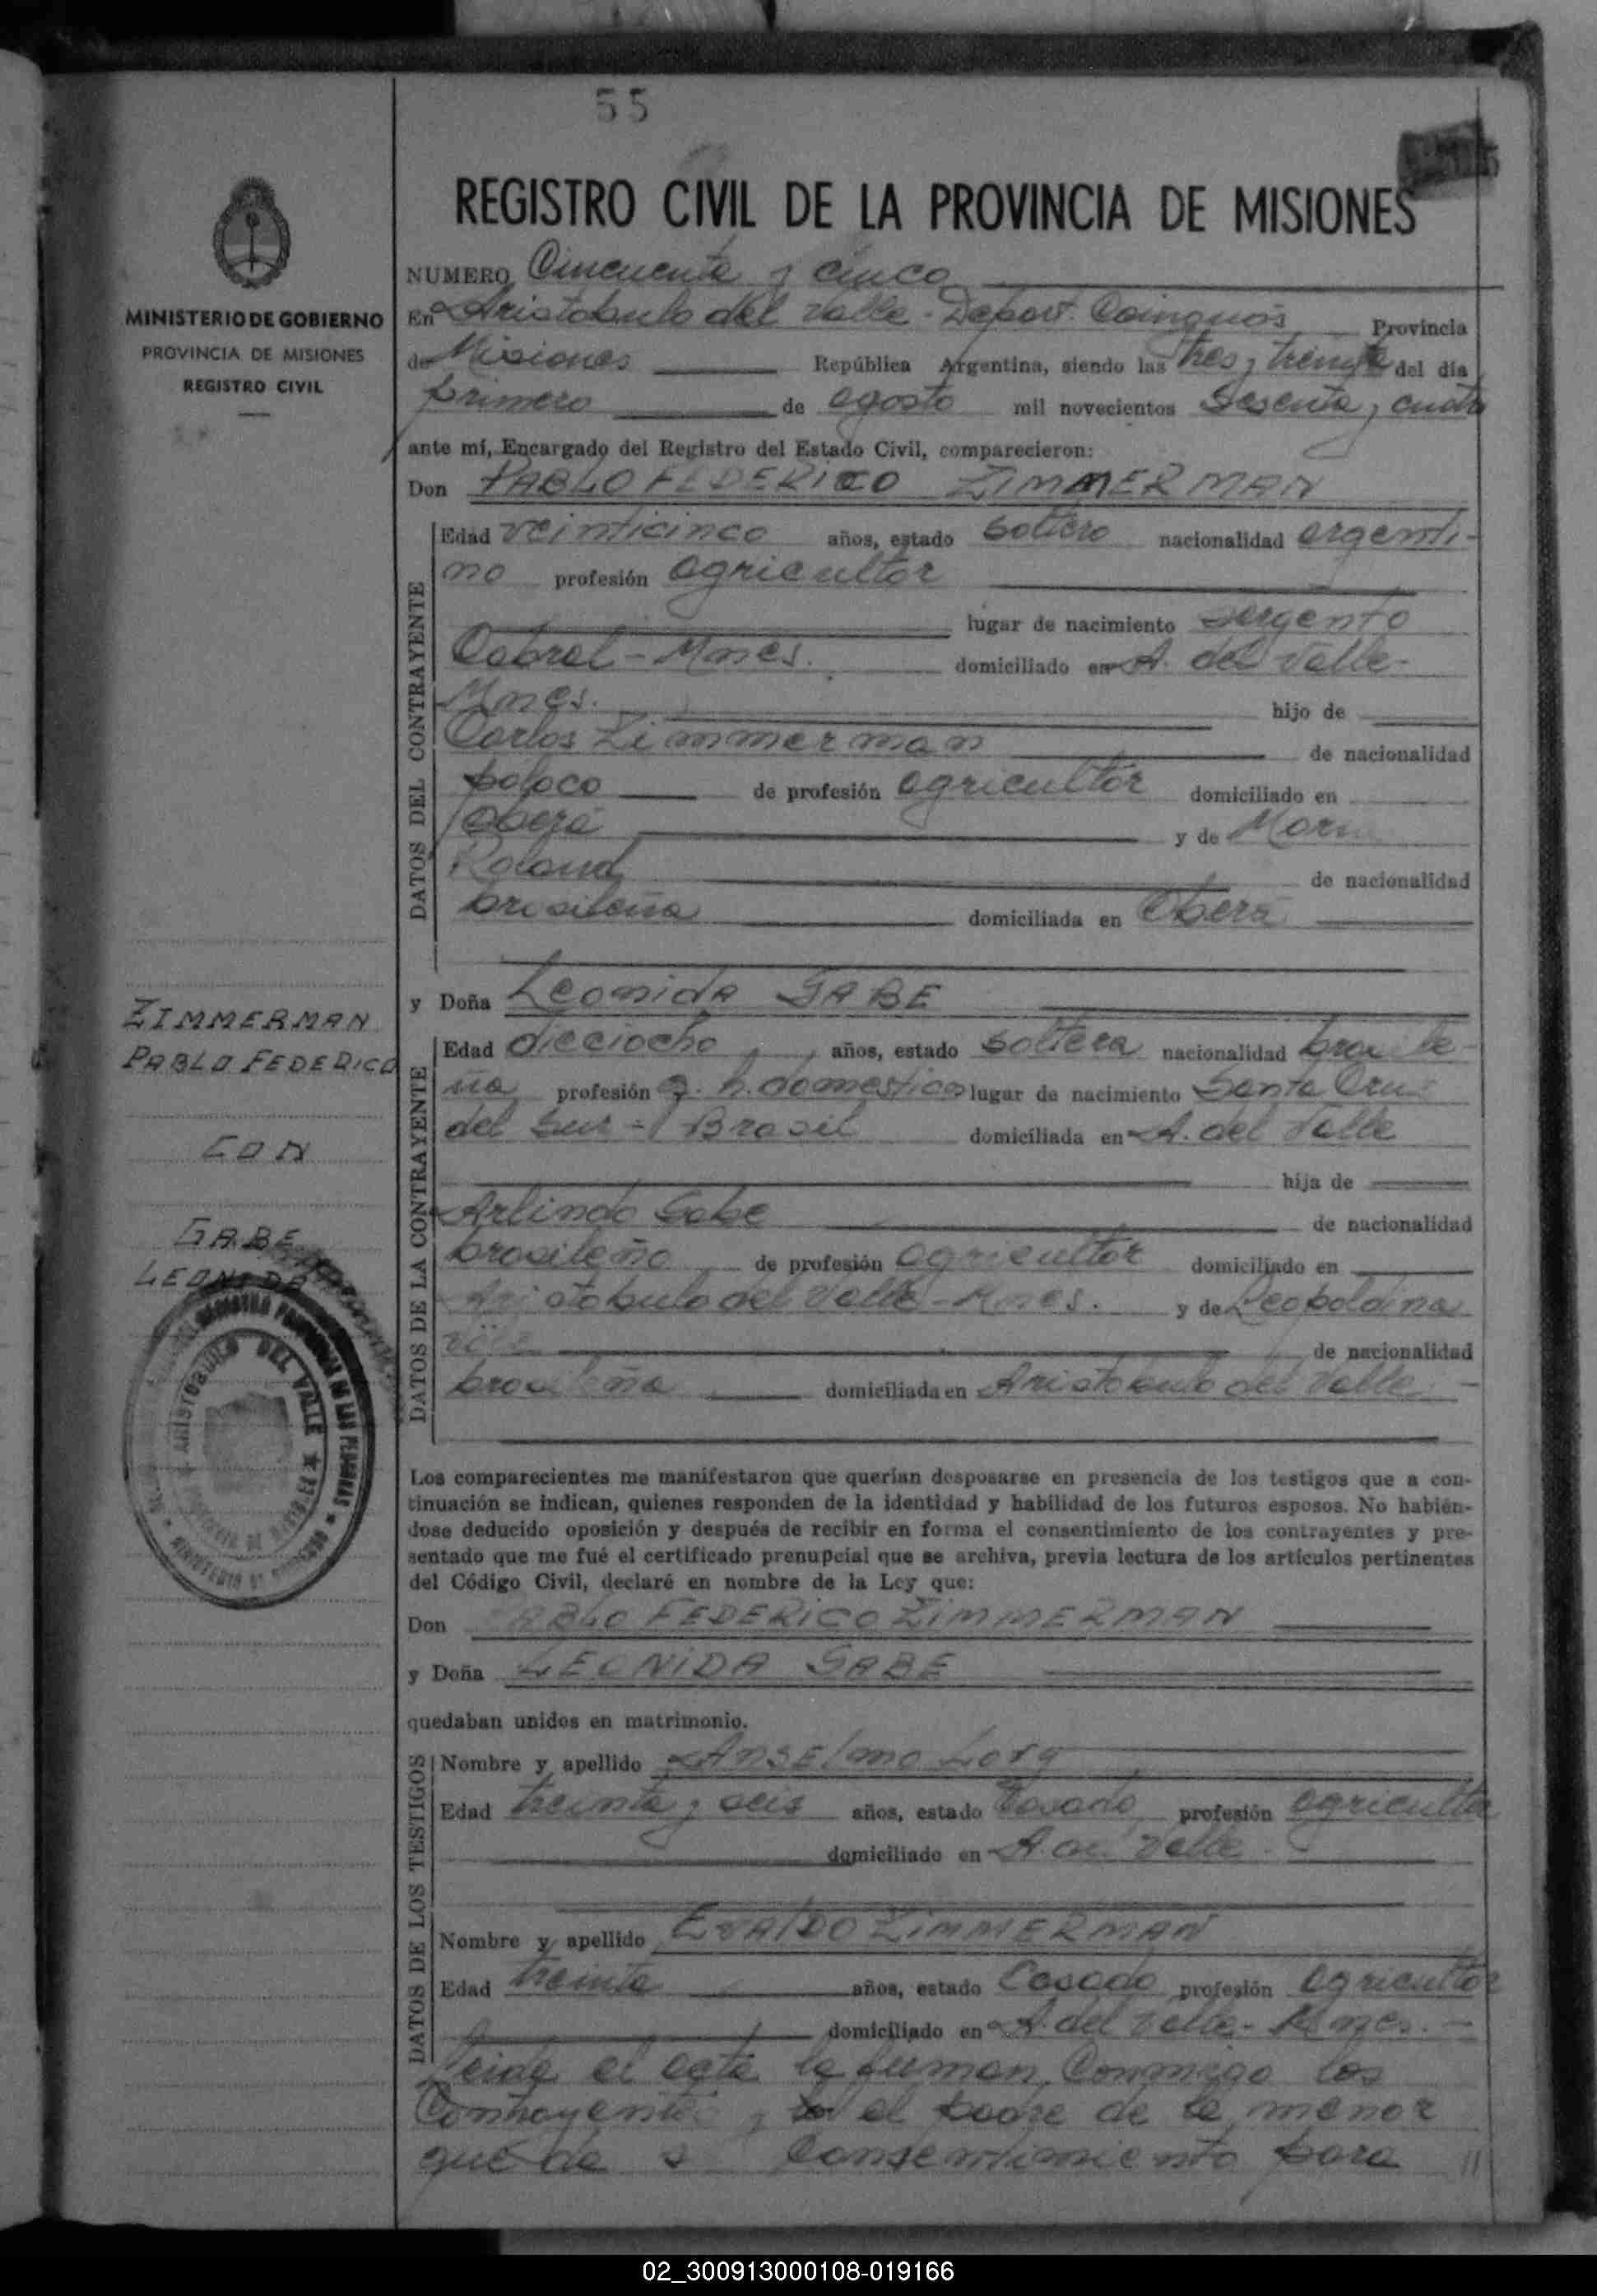 55
REGISTRO CIVIL DE LA PROVINCIA DE MISIONES
MINISTERIO DE GOBIERNO
PROVINCIA DE MISIONES
REGISTRO CIVIL
NUMERO Cincuenta y cinco
En Aristobulo del Valle - Depart. Cainguás Provincia
de Misiones República Argentina, siendo las tres y treinta del día
primero de agosto mil novecientos sesenta y cuatro
ante mí, Encargado del Registro del Estado Civil, comparecieron:
Don PABLO FEDERICO ZIMMERMAN
DATOS DEL CONTRAYENTE
Edad veinticinco años, estado soltero nacionalidad argenti-
no profesión agricultor
lugar de nacimiento Sargento
Cabral - Mnes. domiciliado en A. del Valle-
Mnes. hijo de
Carlos Zimmerman de nacionalidad
polaco de profesión agricultor domiciliado en
Oberá y de
Roland de nacionalidad
brasileña domiciliada en Oberá
ZIMMERMAN
PABLO FEDERICO
CON
GABE
LEONIDA
y Doña Leonida GABE
DATOS DE LA CONTRAYENTE
Edad dieciocho años, estado soltera nacionalidad brasile-
ña profesión q. h. domesticos lugar de nacimiento Santa Cruz
del Sur - Brasil domiciliada en A. del Valle
hija de
Arlindo Gabe de nacionalidad
brasileño de profesión agricultor domiciliado en
Aristobulo del Valle - Mnes. y de Leopoldina
de nacionalidad
brasileña domiciliada en Aristobulo del Valle
ARISTOBULO DEL VALLE
Los comparecientes me manifestaron que querían desposarse en presencia de los testigos que a con-
tinuación se indican, quienes responden de la identidad y habilidad de los futuros esposos. No habién-
dose deducido oposición y después de recibir en forma el consentimiento de los contrayentes y pre-
sentado que me fué el certificado prenupcial que se archiva, previa lectura de los artículos pertinentes
del Código Civil, declaré en nombre de la Ley que:
Don PABLO FEDERICO ZIMMERMAN
y Doña LEONIDA GABE
quedaban unidos en matrimonio.
DATOS DE LOS TESTIGOS
Nombre y apellido Anselmo
Edad treinta y seis años, estado Casado profesión agricultor
domiciliado en A. del Valle
Nombre y apellido EVALDO ZIMMERMAN
Edad treinta años, estado Casado profesión agricultor
domiciliado en A. del Valle - Mnes.
Leida el acta la firman conmigo los
contrayentes y el padre de la menor
que da su consentimiento para //
02_300913000108-019166